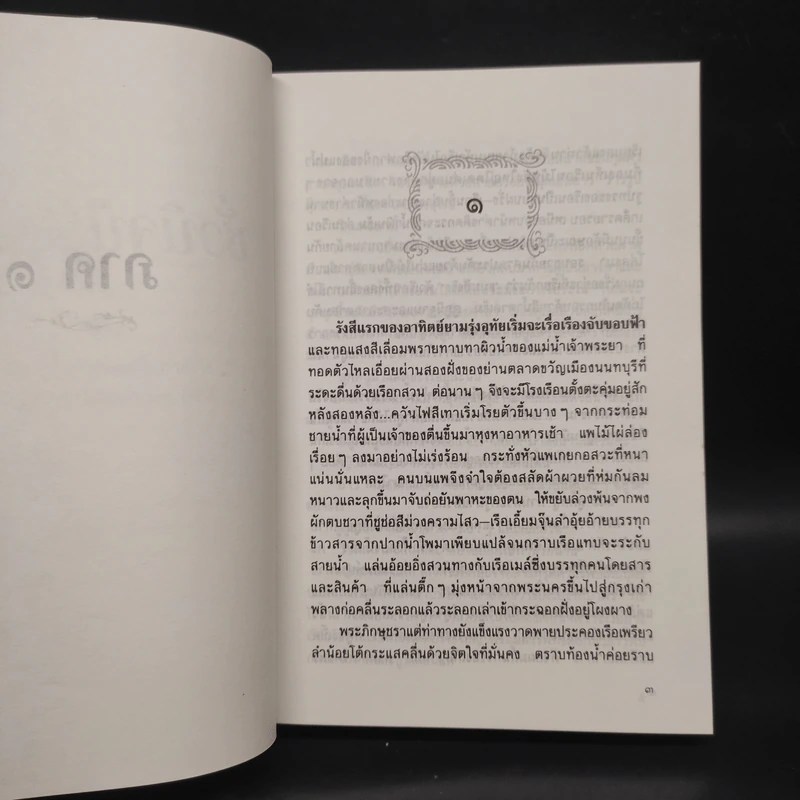 ภาค ๑
๑
รังสีแรกของอาทิตย์ยามรุ่งอุทัยเริ่มจะเรื่อเรืองจับขอบฟ้า
และทอแสงสีเลื่อมพรายทาบทาผิวน้ำของแม่น้ำเจ้าพระยา ที่
ทอดตัวไหลเอื่อยผ่านสองฝั่งของย่านตลาดขวัญเมืองนนทบุรีที่
ระดะดื่นด้วยเรือกสวน ต่อนาน ๆ จึงจะมีโรงเรือนตั้งตะคุ่มอยู่สัก
หลังสองหลัง...ควันไฟสีเทาเริ่มโรยตัวขึ้นบาง ๆ จากกระท่อม
ชายน้ำที่ผู้เป็นเจ้าของตื่นขึ้นมาหุงหาอาหารเช้า แพไม้ไผ่ล่อง
เรื่อย ๆ ลงมาอย่างไม่เร่งร้อน กระทั่งหัวแพเกยกอสวะที่หนา
แน่นนั่นแหละ คนบนแพจึงจำใจต้องสลัดผ้าผวยที่ห่มกันลม
หนาวและลุกขึ้นมาจับถ่อยันพาหะของตน ให้ขยับล่วงพ้นจากพง
ผักตบชวาที่ชูช่อสีม่วงครามไสว—เรือเอี้ยมจุ๊นลำอุ้ยอ้ายบรรทุก
ข้าวสารจากปากน้ำโพมาเพียบแปล้จนกราบเรือแทบจะระกับ
สายน้ำ แล่นอ้อยอิ่งสวนทางกับเรือเมล์ซึ่งบรรทุกคนโดยสาร
และสินค้า ที่แล่นติ๊ก ๆ มุ่งหน้าจากพระนครขึ้นไปสู่กรุงเก่า
พลางก่อคลื่นระลอกแล้วระลอกเล่าเข้ากระฉอกฝั่งอยู่โผงผาง
พระภิกษุชราแต่ท่าทางยังแข็งแรงวาดพายประคองเรือเพรียว
ลำน้อยโต้กระแสคลื่นด้วยจิตใจที่มั่นคง ตราบท้องน้ำค่อยราบ
๓